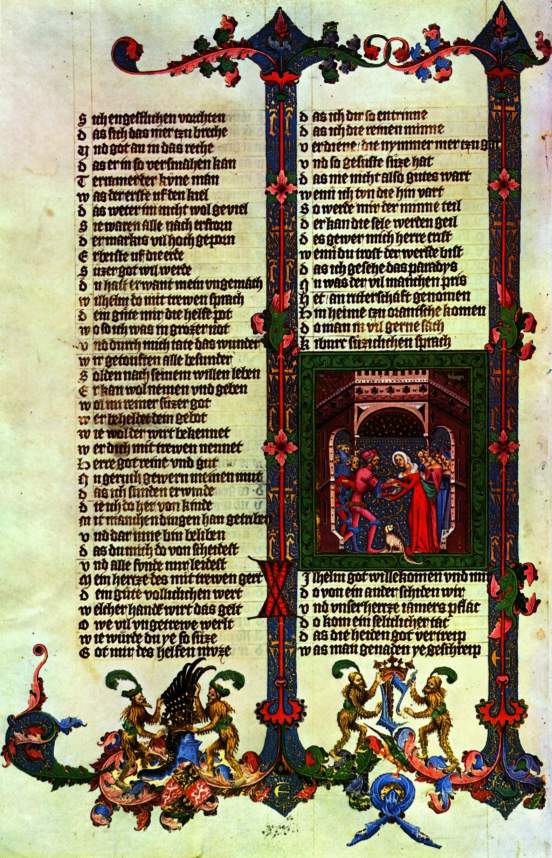 S ich engestlichen vorchten
d as sich das mer tzu breche
V nd got an in das reche
d as er in so versmahen kan
T erramer der kune man
w as der erste uf den kiel
d as weter im nicht wol geviel
S ie waren alle nach
d er markis vil hoch geporn
E rbeiste uf die erde
S uzer got vil werde
d u hast erwant mein ungemach
w ilhelm do mit trewen sprach
d ein gute mir die helfe pot
w o so ich was in grozer not
v nd durch mich tate das wunder
w ir getouften alle besunder
S olden nach seinem willen leben
E r kan wol nemen vnd geben
w ol im reiner suzer got
w er beheldet dein gebot
w ie wol der wirt bekennet
w er dich mit trewen nennet
h erre got reine vnd gut
N u geruch gewern meinen mut
d as ich sunden erwinde
d ie ich do her von kinde
M it manchen dingen han getriben
v nd dar inne bin beliben
d as du mich do von scheidest
v nd alle sunde mir leidest
M ein hertze des mit trewen gert
d ein gute vollichen wert
w elcher hande wirt das gelt
O we vil ungetrewe werlt
w ie wurde du ye so suze
G ot mir des helfen muze
d as ich dir so entrinne
d as ich die reinen minne
v erdiene die nymmer mer tzu gat
v nd so gesuste suze hat
d as me nicht also gutes wart
w enn ich tun die hin vart
S o werde mir der minne teil
d er kan die sele werden geil
d es gewer mich herre crist
w enn du trost der werlde bist
d as ich gesehe das paradys
N u was der vil manchen pris
H et an ritterschaft genomen
h in heime tzu orantsche komen
d o man in vil gerne sach
k iburc suzlichen sprach
W Ilhelm got willekomen vnd min
d o von ein ander schiden wir
v nd vnser hertze iamers pflac
d o kom ein selticlicher tac
d as die heiden got vertreip
w as man genaden ye geschreip